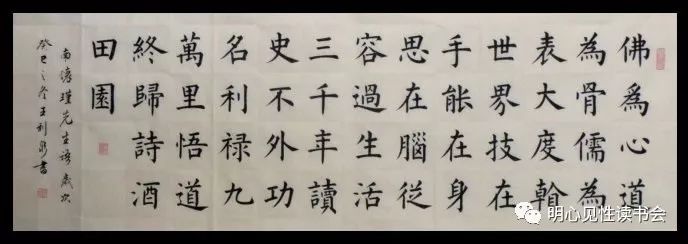 佛爲心道
為骨儒為
表大度
世界技在
手能在身
思在腦從
容過生活
三千年讀
史不外功
名利禄九
萬里悟道
終歸詩酒
田園
南懷瑾先生語歲次
癸巳之冬王利書
明心见性读书会